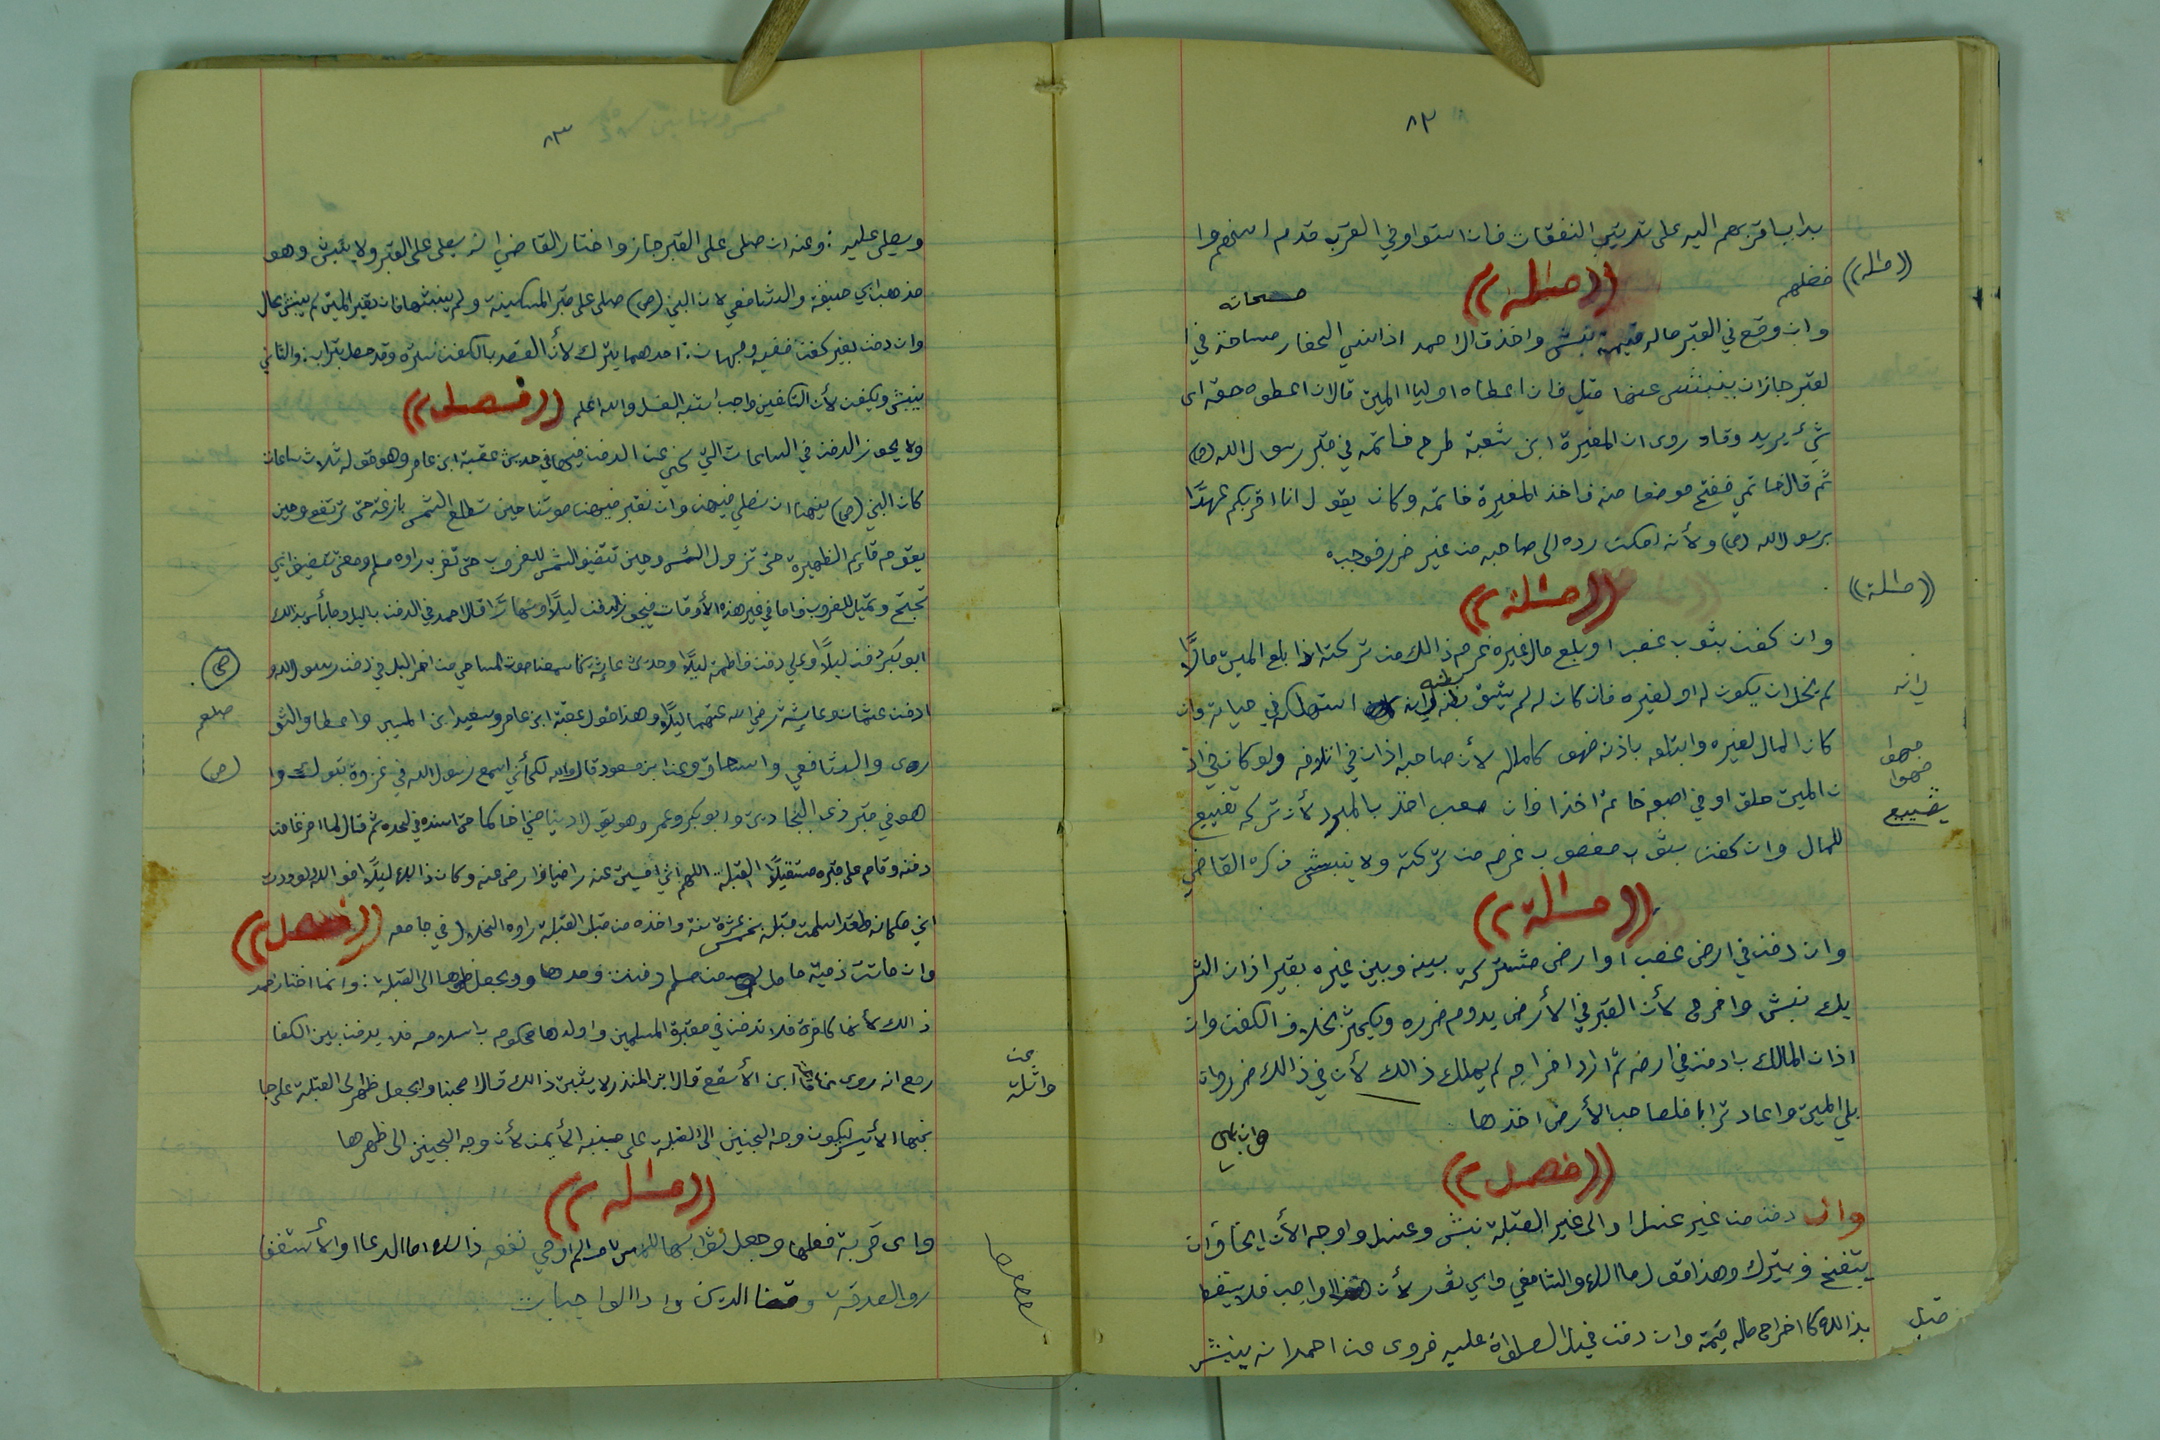 ٨٢
بدا باقربهم اليه على ترتيب النفقات فان استوا وفي القرب قدم اسنهم وا
فضلهم
((مسالة))
((مسالة))
وان وقع في القبر ماله قيمة نبش واخذ قال احمد اذا نسي الحفار مساحته في ا
مسحاته
لقبر جاز ان ينبش عنها قيل فان اعطاه اوليا الميت قال ان اعطوه حقه اي
شيء يريد وقد روي ان المغيرة ابن شعبة طرح خاتمه في قبر رسول الله (ص)
ثم قال خاتمي ففتح موضعا منه فاخذ المغيرة خاتمه وكان يقول انا اقربكم عهدًا
برسول الله (ص) ولأنه امكن رده الى صاحبه من غير ضرر فوجب
((مسئلة))
((مسئلة))
وان كفن بثوب غصب او بلع مال غيره غرم ذالك من تركته اذا بلع الميت مالًا
لم يخل ان يكون له او لغيره فان كان له لم يشق بطنه لانه استهلكه في حياته وان
بطنه
لانه
كان المال لغيره وابتلعه باذنه فهو كماله لأن صاحبه اذن في اتلافه ولو كان في اذ
فهوا
فهوا
ن الميت حلق او في اصبعه خاتم اخذ فان صعب اخذ بالمبرد لأن تركه تضييع
تضييع
للمال وان كفن بثوب مغصوب غرم من تركته ولا ينبش ذكره القاضي
((مسالة))
وان دفن في ارض غصب او ارض مشتركة بينه وبين غيره بغير اذن الشر
يك نبش واخرج لأن القبر في الأرض يدوم ضرره ويكثر بخلاف الكفن وان
اذن المالك بادفنه في ارضه ثم اراد اخراجه لم يملك ذالك لأن في ذالك ضرر وان
بلي الميت وعاد ترابا فلصاحب الأرض اخذها
وان بلي
((فصل))
وان دفن من غير غسل او الى غير القبلة نبش وغسل ووجه الا ان يخاف ان
يتفسخ فيترك وهذا قول مالك والشافعي وابي ثور لأن هذا واجب فلا يسقط
بذالك كاخراج ماله قيمة وان دفن قبل الصلواة عليه فروي عن احمد انه ينبش
قبل
٨٣
ويصلى عليه : وعنه ان صلى على القبر جاز واختار القاضي انه يصلى على القبر ولا ينبش وهو
مذهب ابي حنيفة والشافعي لان النبي (ص) صلى على قبر المسكينة ولم ينبشها فان تغير الميت لم ينبش بحال
وان دفن بغير كفن ففيه وجهان: احدهما يترك لأن القصد بالكفن ستره وقد حصل بتراب: والثاني
ينبش ويكفن لأن التكفين واجب اشبه الغسل والله اعلم ((فصل))
ولا يجوز الدفن في الساعات التي نهي عن الدفن فيها في حديث عقبة ابن عامر وهو قوله ثلاث ساعات
كان النبي (ص) ينهنا ان نصلي فيهن وان نقبر فيهن موتنا حين تطلع الشمس بازغة حتى ترتفع وحين
يقوم قايم الظهيرة حتى تزول الشمس وحين تتضيف الشمس للغروب حتى تغرب راوه مسلم ومعنى تتضيف اي
تجنح وتميل للغروب فاما في غير هذه الأوقات فيجوز الدفن ليلًا ونهارًا قال احمد في الدفن بالليل وما بأس بذالك
ابو بكر دفن ليلًا وعلي دفن فاطمة ليلًا وحديث عايشة كنا سمعنا صوت المساحي من اخر الليل في دفن رسول الله و
(ص)
ادفن عثمان وعايشة رضي الله عنهما ليلًا وهذا قول عقبة ابن عامر وسعيد ابن المسيب واعطا والثو
صلعم
روى والشافعي واسحاق وعن ابن مسعود قال والله لكأني اسمع رسول الله في غزوة تبوك وا
(ص)
هو في قبر ذي البجادين وابو بكر وعمر وهو يقول ادنيا مني اخاكما حتى اسنده في لحده ثم قال لما فرغ من
دفنه وقام على قبره مستقبلًا القبلة: اللهم اني امسيت عنه راضيا فارض عنه وكان ذالك ليلًا فوالله لو وددت
اني مكانه ولقد اسلمت قبله بخمس عشرة سنة واخذه من قبل القبلة راوه الخلال في جامعه ((فصل))
وان ماتت ذمية حامل من مسلم دفنت وحدها ويجعل ظهرها الى القبلة: وانما اختار احمد
ذالك لأنها كافرة فلا تدفن في مقبرة المسلمين واولدها محكوم باسلامه فلا يدفن بين الكفا
رمع انه روي ابن الأسقع قال ابن المنذر لا يثبت ذالك قال اصحبنا ويجعل ظهر الى القبلة على جا
عن
واثلة
نبها الأيسر ليكون وجه الجنين الى القبلة على جنبه الأيمن لأن وجه الجنين الى ظهرها
((مسئلة))
واى قربة فعلها وجعل ثوابها للميت نفعه ذالك اما الدعا او الأستغفا
ر والصدقة وقضا الدين وادا الواجبات